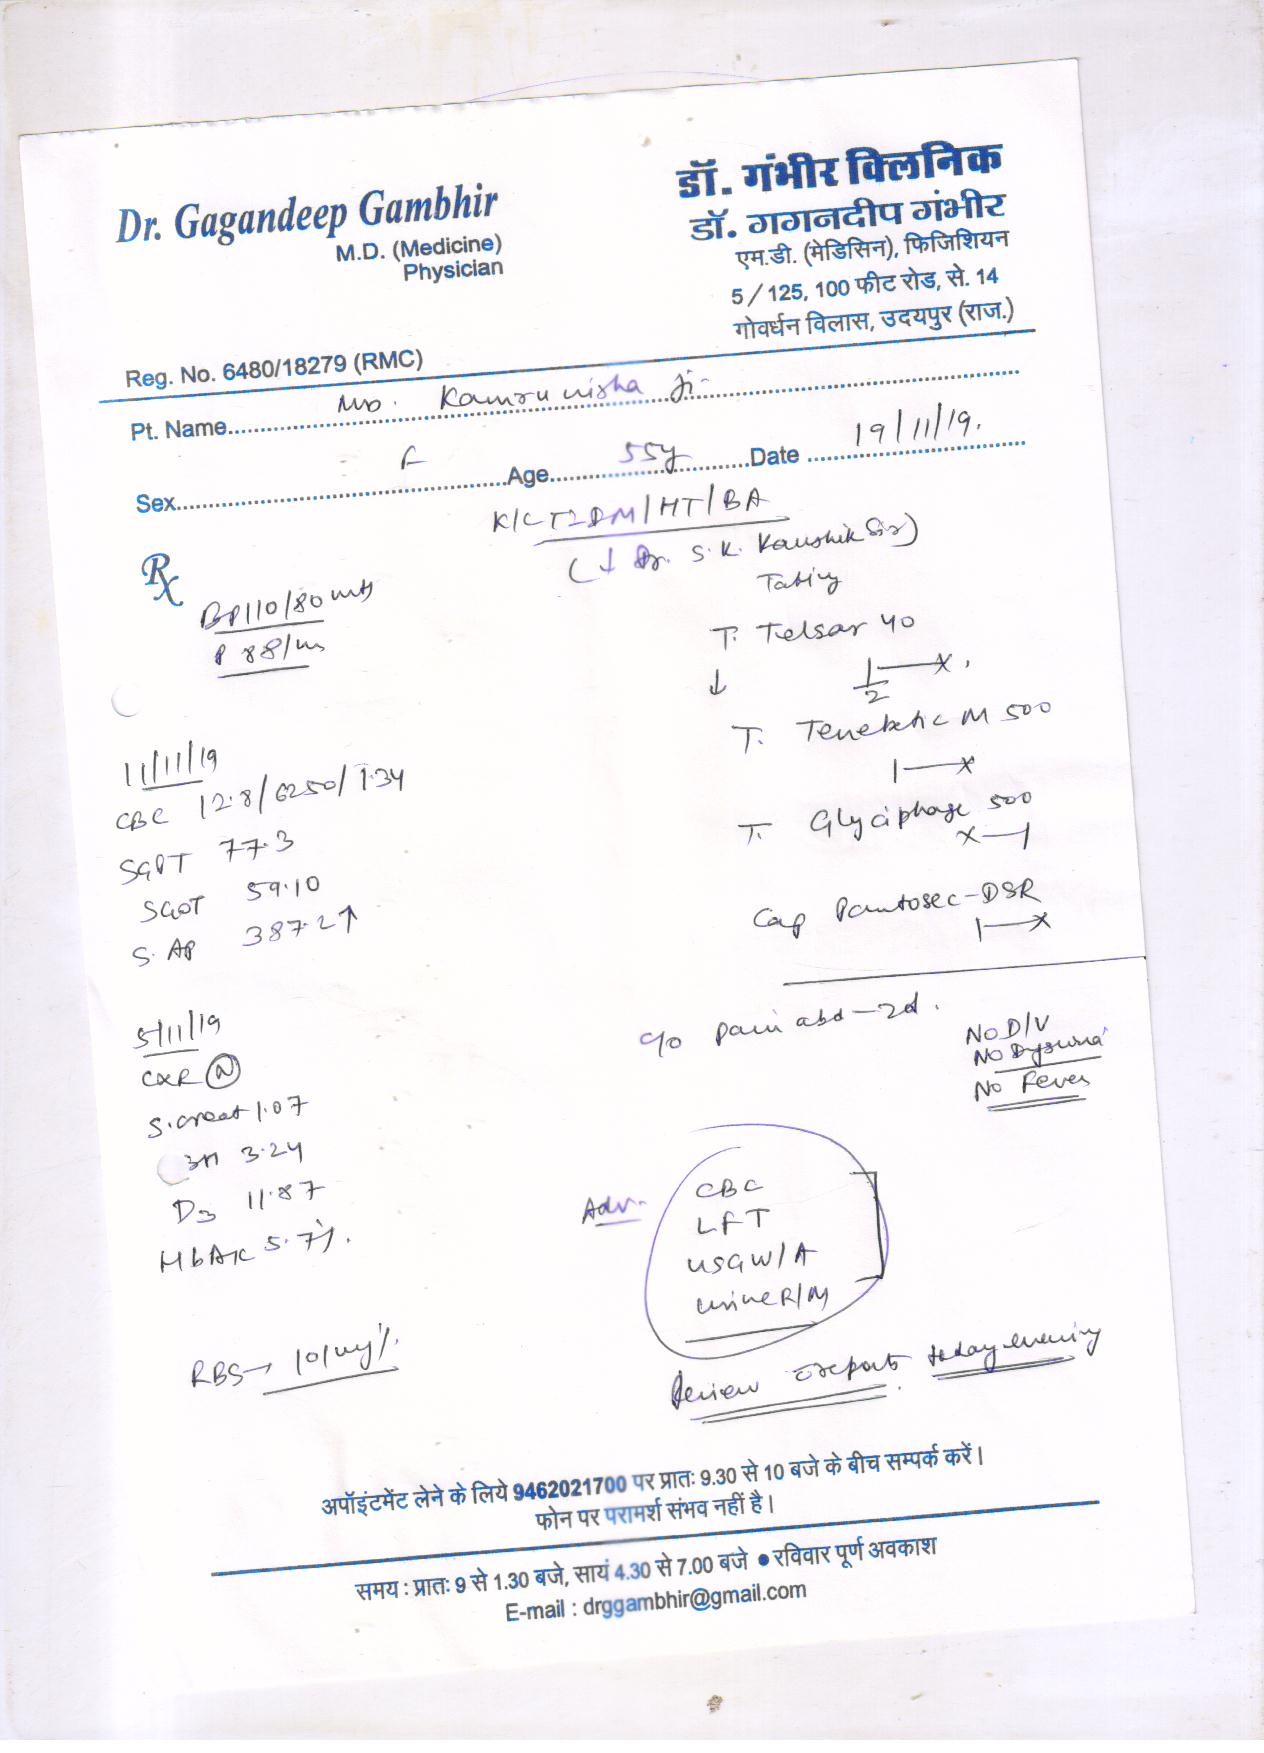 Dr. Gagandeep Gambhir
M.D. (Medicine)
Physician
Reg. No. 6480/18279 (RMC)
डॉ. गंभीर क्लिनिक
डॉ. गगनदीप गंभीर
एम.डी. (मेडिसिन), फिजिशियन
5/125, 100 फीट रोड, से. 14
गोवर्धन विलास, उदयपुर (राज.)
Pt. Name Kamrunisha Ji
Sex F Age 55y Date 19/11/19.
K/C T2DM/HT/BA
(↓ Dr. S.K. Kaushik Sir)
Taking
Rx
BP 110/80
P 88/m
T. Telsar 40
↓ 1/2 — x
T. Tenebetic M 500
1 — x
T. Glyciphage 500
x — 1
Cap Pantosec-DSR
1 — x
11/11/19
CBC 12.8/6250/1.34
SGPT 77.3
SGOT 59.10
S. AP 387.2↑
5/11/19
CXR (N)
S.creat 1.07
3.24
D3 11.87
HbA1c 5.7%.
RBS→ 101mg%.
c/o pain abd — 2d.
No D/V
No Dysuria
No Fever
Adv.
CBC
LFT
USG W/A
urine R/M
Review reports today evening
अपॉइंटमेंट लेने के लिये 9462021700 पर प्रातः 9.30 से 10 बजे के बीच सम्पर्क करें।
फोन पर परामर्श संभव नहीं है।
समय : प्रातः 9 से 1.30 बजे, सायं 4.30 से 7.00 बजे ● रविवार पूर्ण अवकाश
E-mail : drggambhir@gmail.com